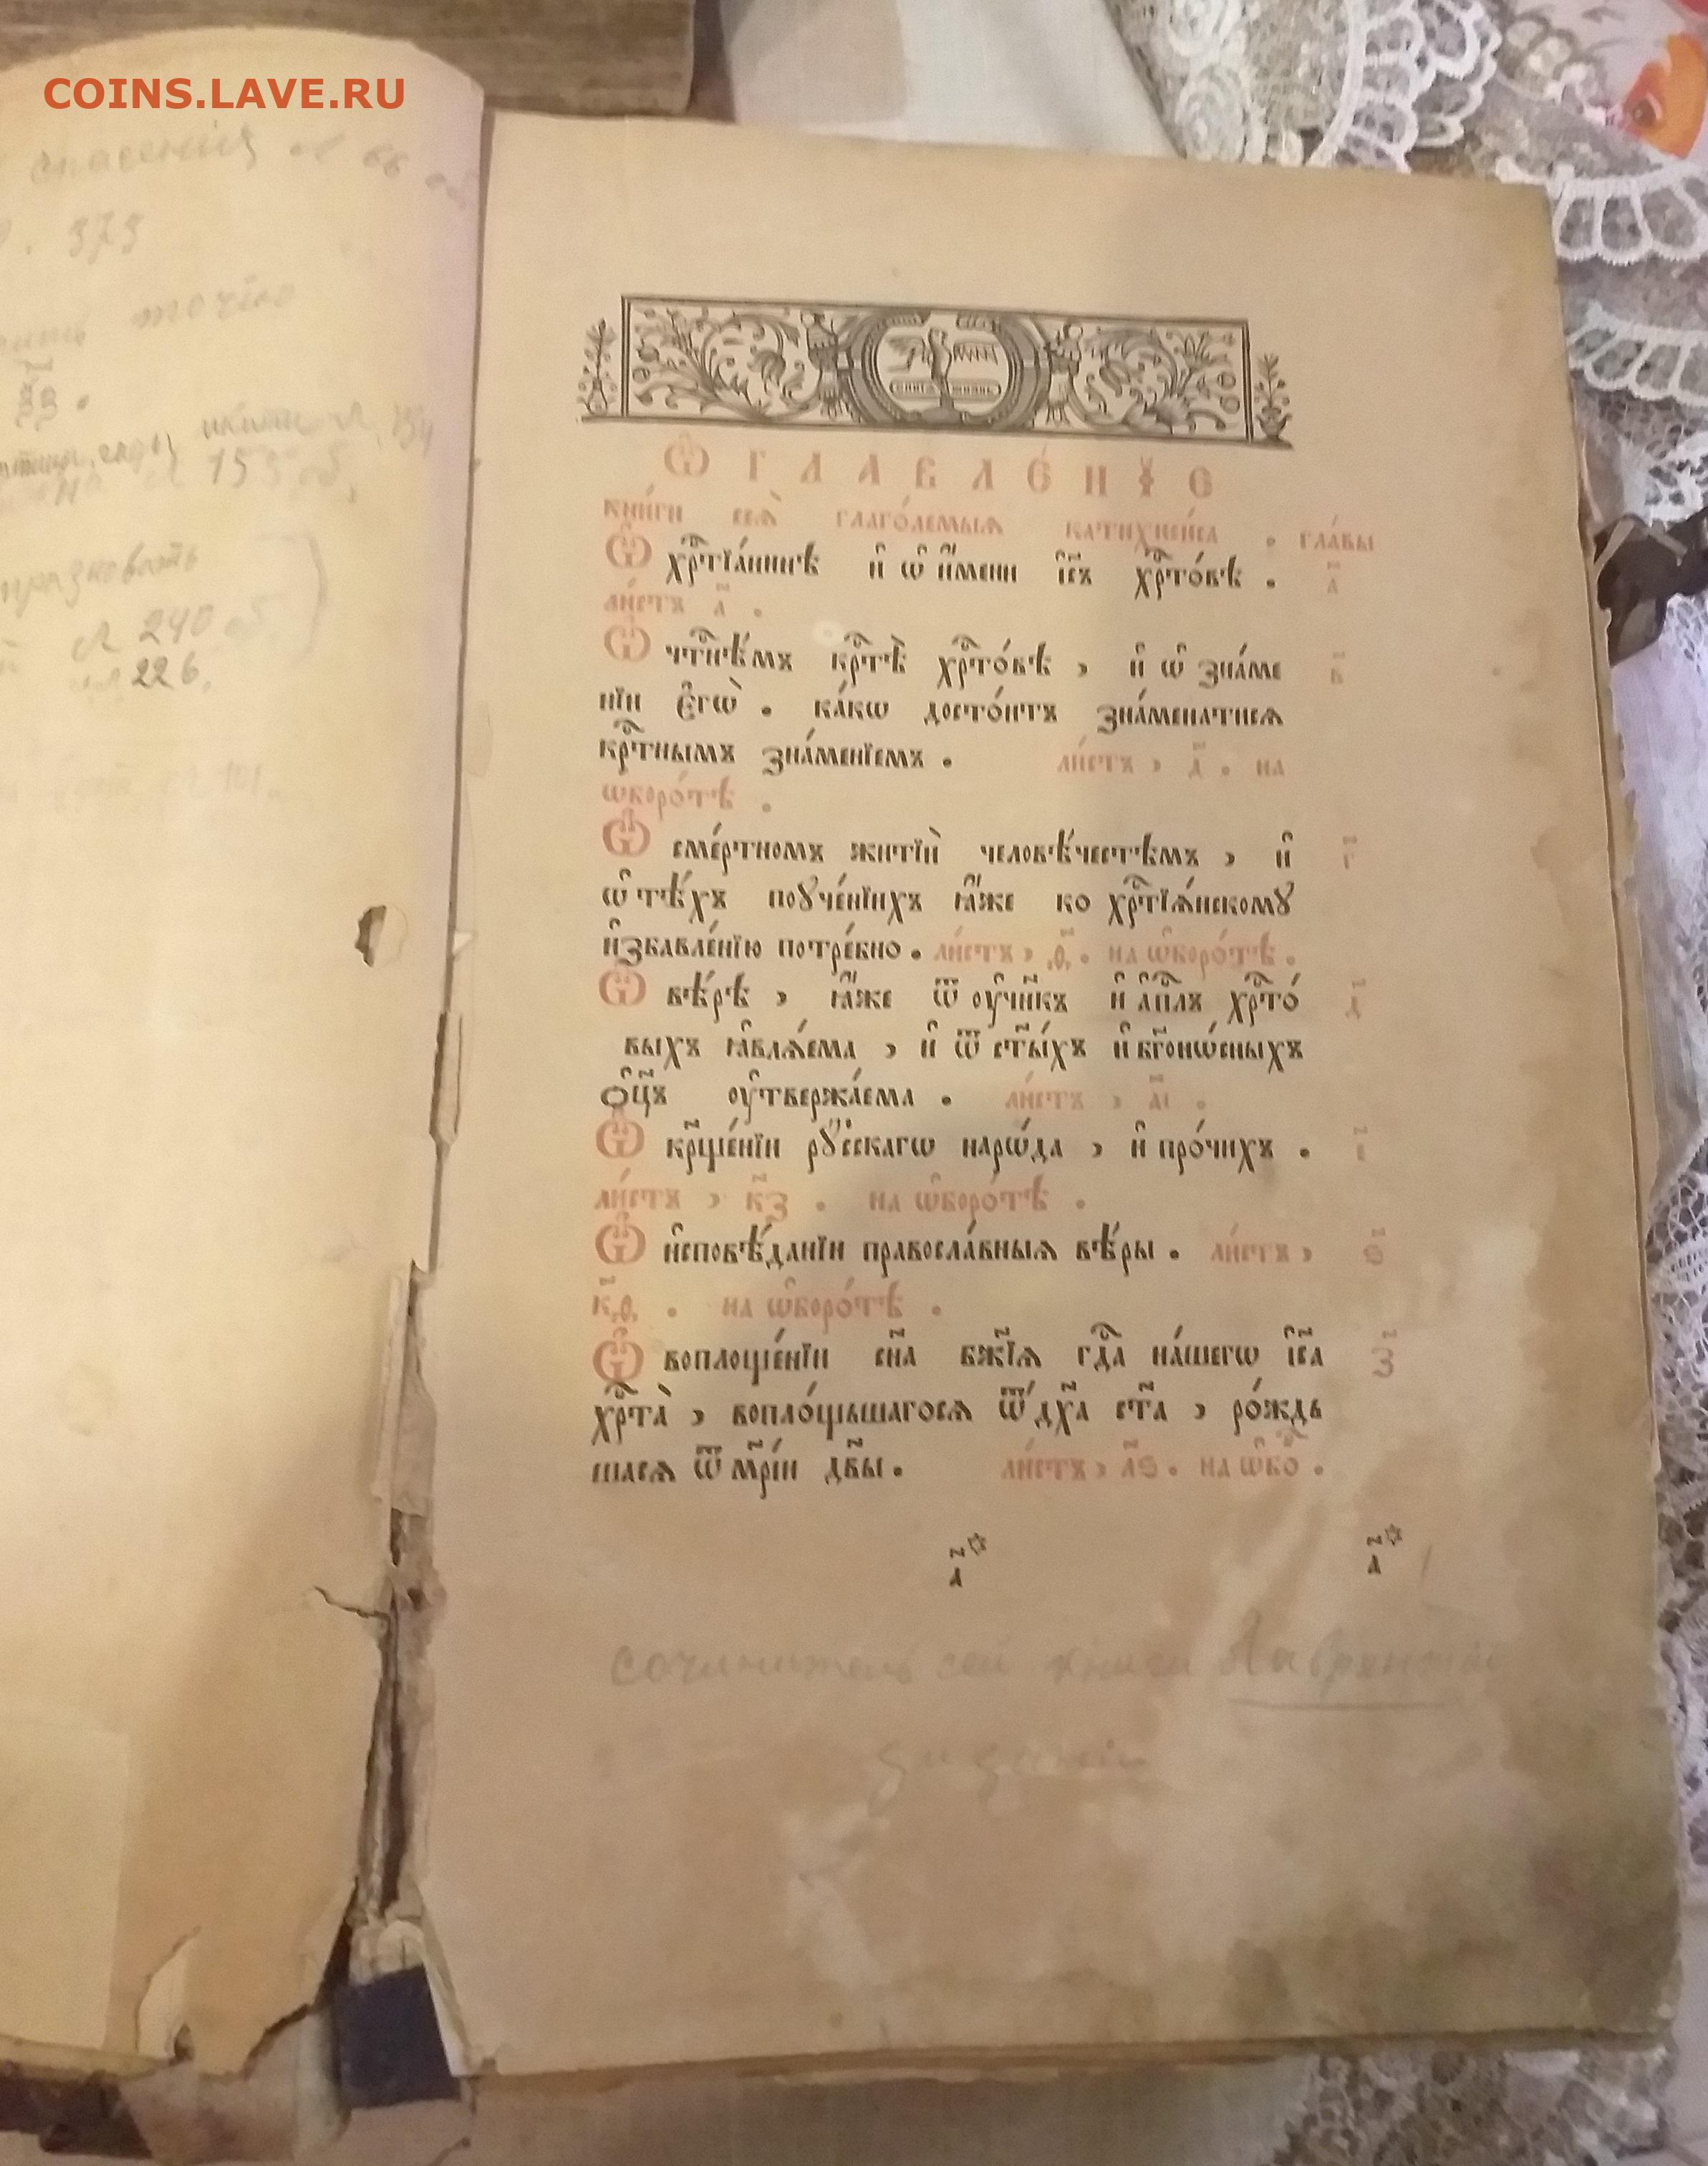 COINS.LAVE.RU
спасенїѧ л 66 об
373
точїю
л 155 об,
праздновать
л 240 об
226.
книга
Ѡ҆ГЛАВЛЕ́НЇЕ
кни́ги сеѧ̀ глаго́лемыѧ катихи́сиса . гла́вы
Ѡ҆ хрⷭ҇тїа́нинѣ и҆ ѡ҆ и҆́мени і҆с҃ хрⷭ҇то́вѣ . а҃
ли́стъ а҃ .
Ѡ҆ чтⷭ҇нѣ́мъ крⷭ҇тѣ̀ хрⷭ҇то́вѣ , и҆ ѡ҆ зна́ме в҃
нїи є҆гѡ̀ . ка́кѡ досто́итъ зна́менатисѧ
крⷭ҇тнымъ зна́менїемъ . ли́стъ , д҃ . на
ѡ҆боро́тѣ .
Ѡ҆ сме́ртномъ житїѝ человѣ́честѣмъ , и҆ г҃
ѡ҆ тѣ́хъ поꙋче́нїихъ ꙗ҆́же ко хрⷭ҇тїѧ́нскомꙋ
и҆збавле́нїю потре́бно . ли́стъ , ѳ҃ . на ѡ҆боро́тѣ .
Ѡ҆ вѣ́рѣ , ꙗ҆́же ѿ оу҆чн҃къ и҆ а҆пⷭ҇лъ хрⷭ҇то́ д҃
выхъ ꙗ҆влѧ́ема , и҆ ѿ ст҃ы́хъ и҆ бг҃оно́сныхъ
ѻ҆ц҃ъ оу҆твержа́ема . ли́стъ , а҃і .
Ѡ҆ крⷭ҇ще́нїи рꙋ́сскагѡ наро́да , и҆ про́чихъ . є҃
ли́стъ , к҃з . на ѡ҆боро́тѣ .
Ѡ҆ и҆сповѣ́данїи правосла́вныѧ вѣ́ры . ли́стъ , ѕ҃
к҃ѳ . на ѡ҆боро́тѣ .
Ѡ҆ воплоще́нїи сн҃а бж҃їѧ гдⷭ҇а на́шегѡ і҆с҃а з҃
хрⷭ҇та̀ , вопло́щьшагосѧ ѿ дх҃а ст҃а , ро́ждь
шаѧсѧ ѿ мр҃і́и дв҃ы . ли́стъ , л҃ѕ . на ѡ҆бо .
а҃* а҃*
сочинитель сей книги Лаврентий
Зизаний